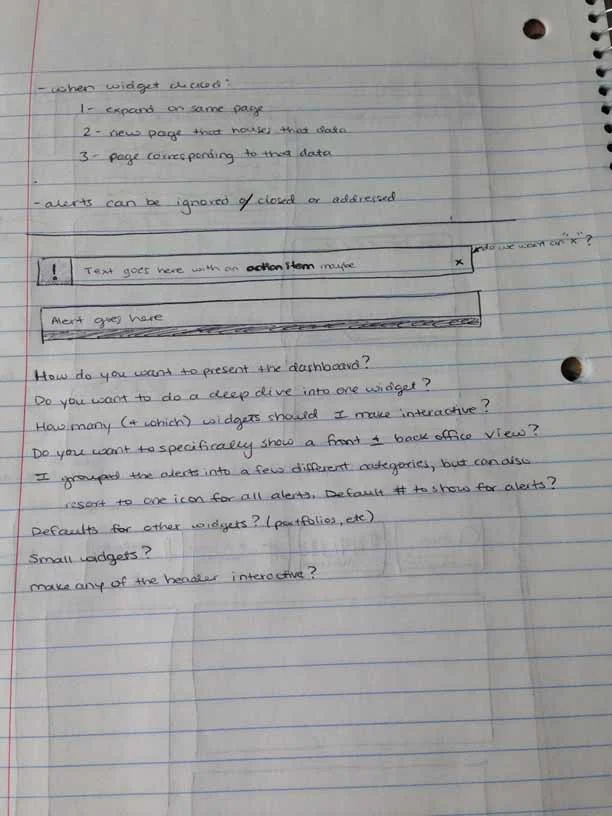 - when widget clicked:
1- expand on same page
2- new page that houses that data
3- page corresponding to that data
- alerts can be ignored / closed or addressed
do we want an "x"?
! Text goes here with an action item maybe x
Alert goes here
How do you want to present the dashboard?
Do you want to do a deep dive into one widget?
How many (+ which) widgets should I make interactive?
Do you want to specifically show a front + back office view?
I grouped the alerts into a few different categories, but can also
resort to one icon for all alerts. Default # to show for alerts?
Defaults for other widgets? (portfolios, etc)
Small widgets?
make any of the header interactive?